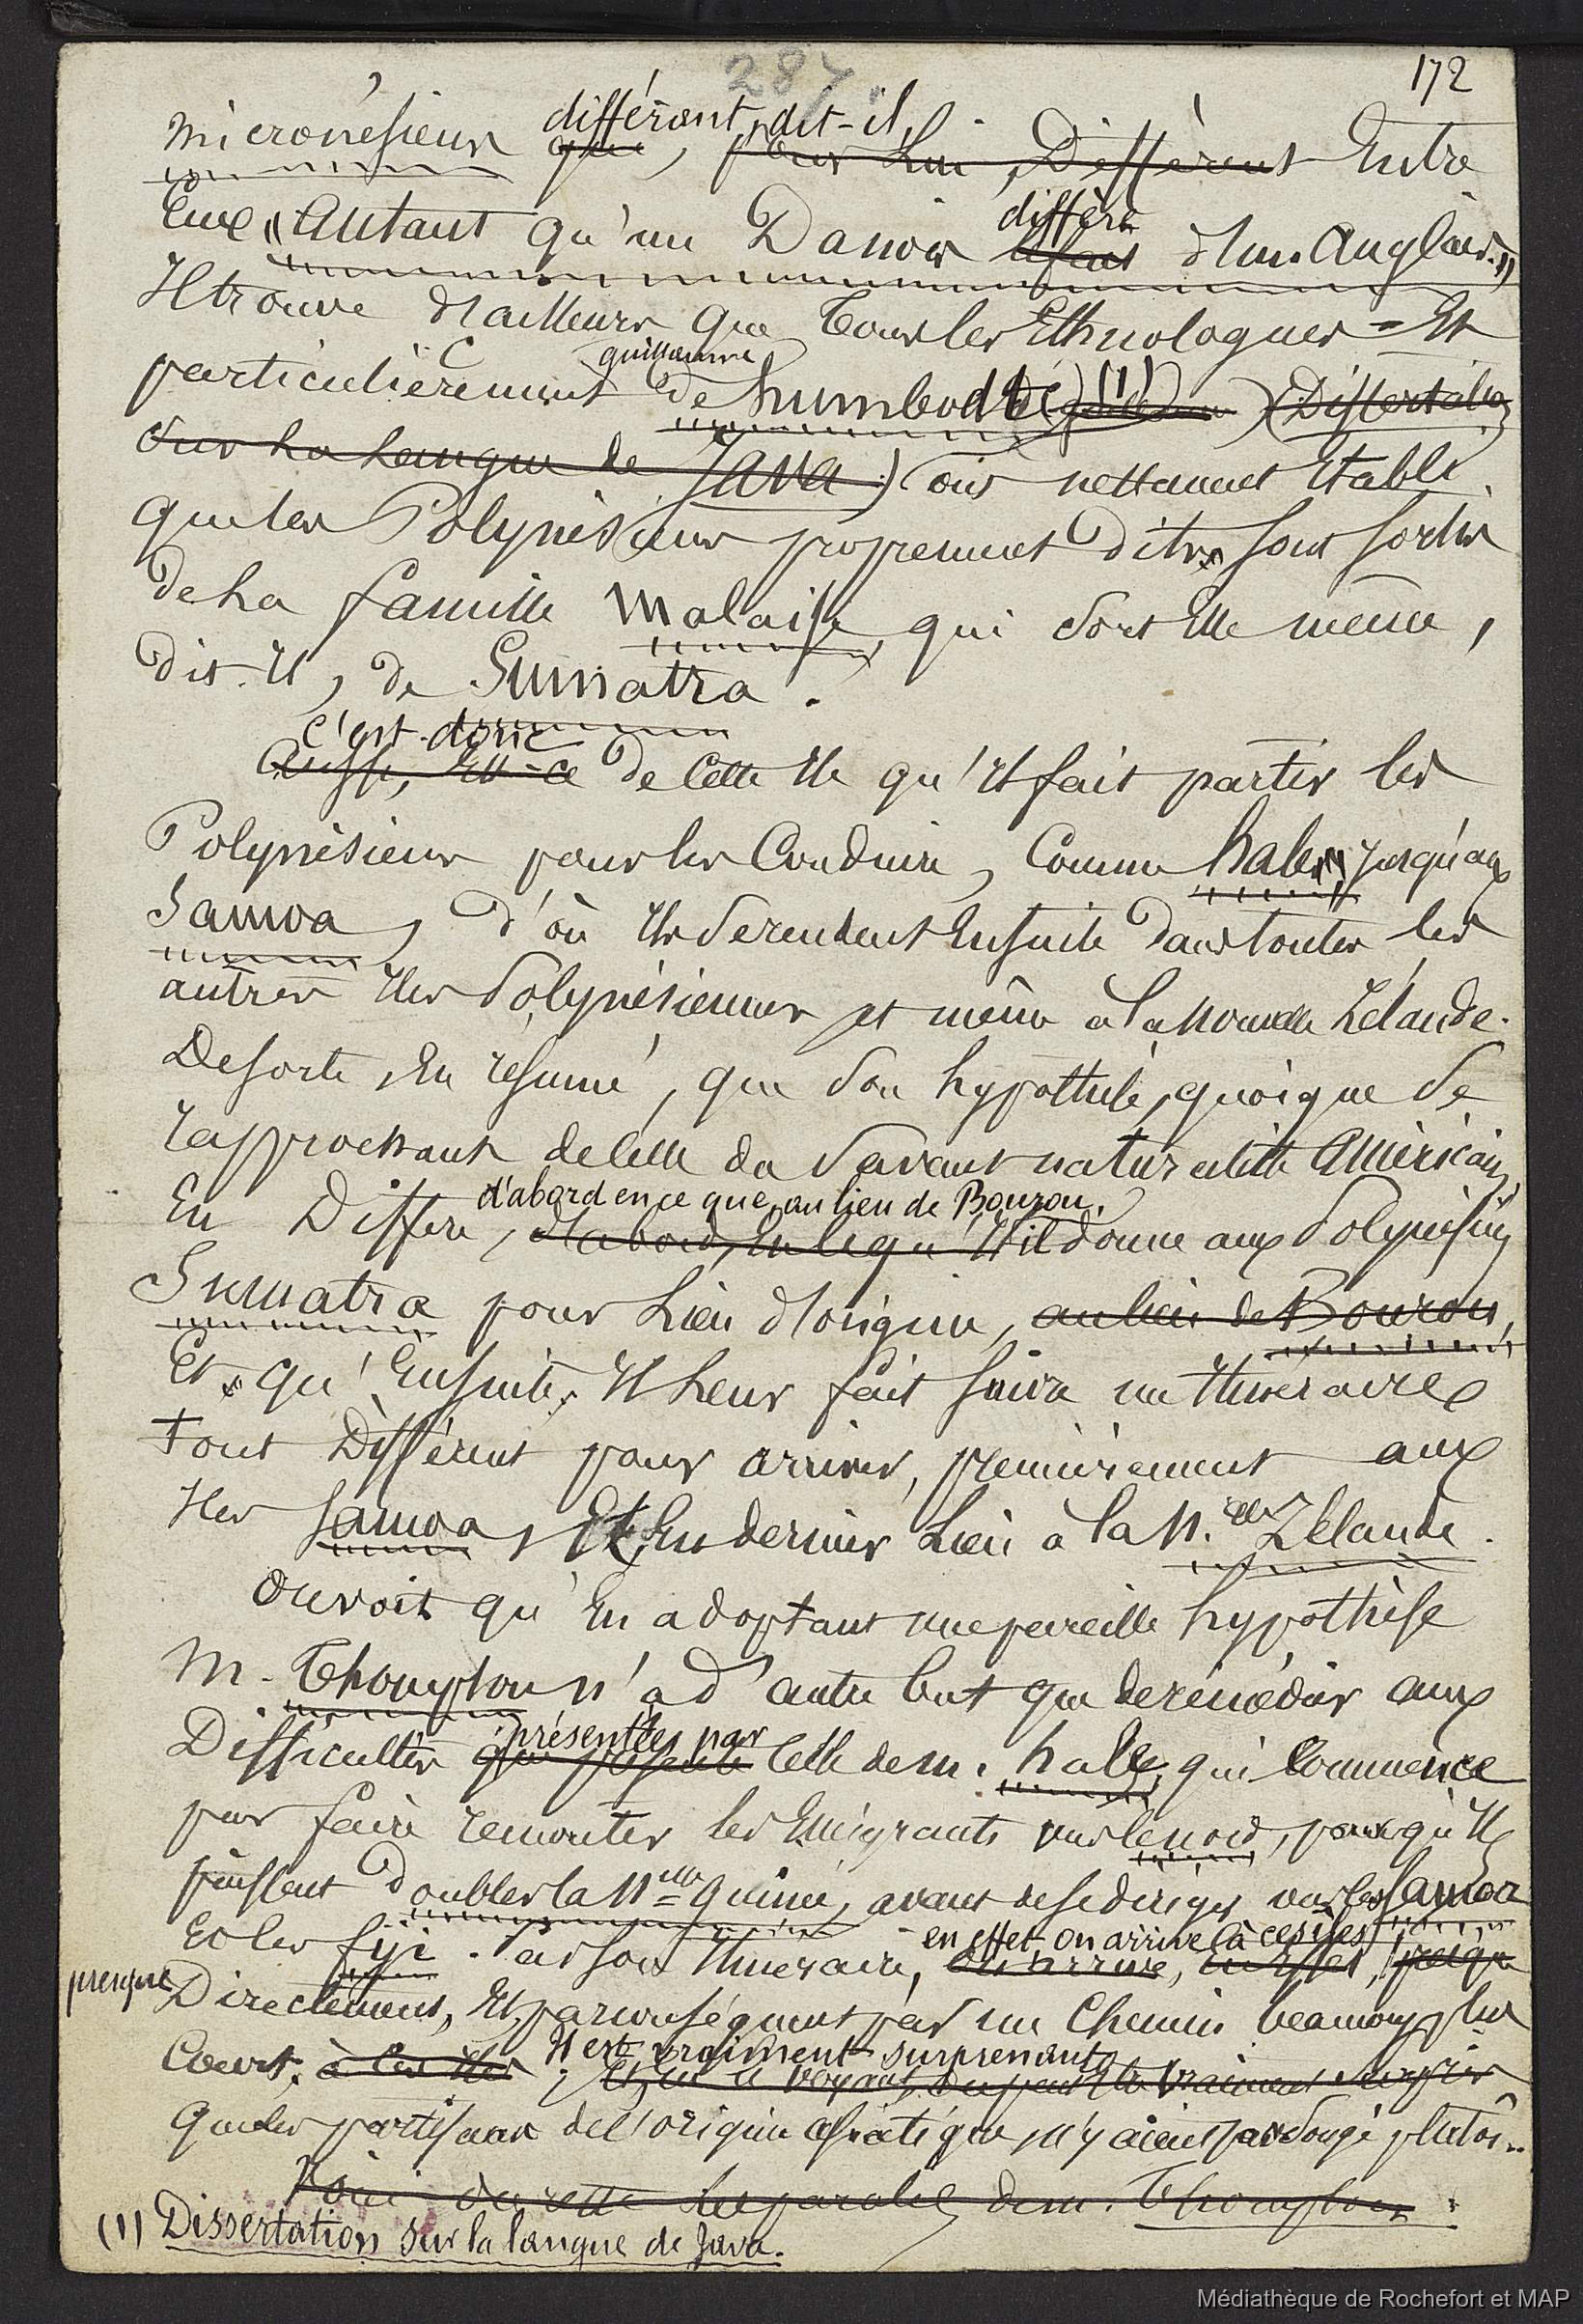 287
172
micronésiens différant, dit-il,
que, pour lui, diffèrent Entre
Eux "autant qu'un Danois diffère
le fait d'un anglais."
Il trouve d'ailleurs que tous les Ethnologues - Et
particulièrement guillaume de humbodt (1) (Dissertation
sur la langue de Java) ont nettement Etabli
que les Polynésiens proprement dits sont sortis
de la famille malaise, qui sort Elle même,
dit-il, de Sumatra.
c'est donc
aussi, Est-ce de cette Ile qu'il fait partir les
Polynésiens pour les Conduire, Comme hale, jusqu'aux
Samoa, d'où Ils se rendent Ensuite dans toutes les
autres Iles Polynésiennes et même à la nouvelle Zélande.
De sorte, En résumé, que son hypothèse, quoique se
rapprochant de celle du savant naturaliste américain,
d'abord en ce que, au lieu de Bourou,
En Diffère, d'abord, En ce qu'Il il donne aux Polynésiens
Sumatra pour Lieu d'origine, au lieu de Bourou,
Et qu'Ensuite, Il Leur fait suivre un Itineraire
tout Différent pour arriver, premièrement aux
Iles Samoa, Et En dernier Lieu à la N.elle Zélande.
On voit qu'En adoptant une pareille hypothèse
M. Thompson n'a d'autre but que de remédier aux
présentées par
Difficultés que présente Celle de m. hale, qui Commence
par faire remonter les Emigrants vers le nord, pour qu'Ils
puissent doubler la N.elle guinée, avant de se diriger vers les Samoa
en effet on arrive à ces îles
Et les fiji. Par son Itineraire, on arrive, En Effet, presque
presque Directement, Et par conséquent par un Chemin beaucoup plus
Il est vraiment surprenant
Court, à ces Iles; Et, En le voyant, on peut Etre vraiment surpris
que les partisans de l'origine asiatique n'y aient pas songé plutôt..
Voici du reste les paroles de m. Thompson:
(1) Dissertation sur la langue de Java.
Médiathèque de Rochefort et MAP